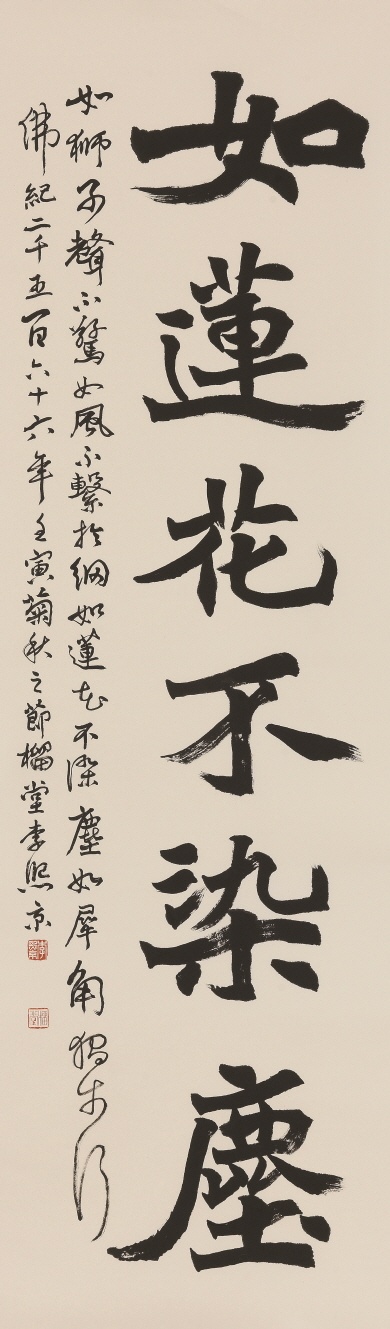 如蓮花不染塵
如獅子聲不驚如風不繫於網如蓮花不染塵如犀角獨步行
佛紀二千五百六十六年壬寅菊秋之節榴堂李熙京